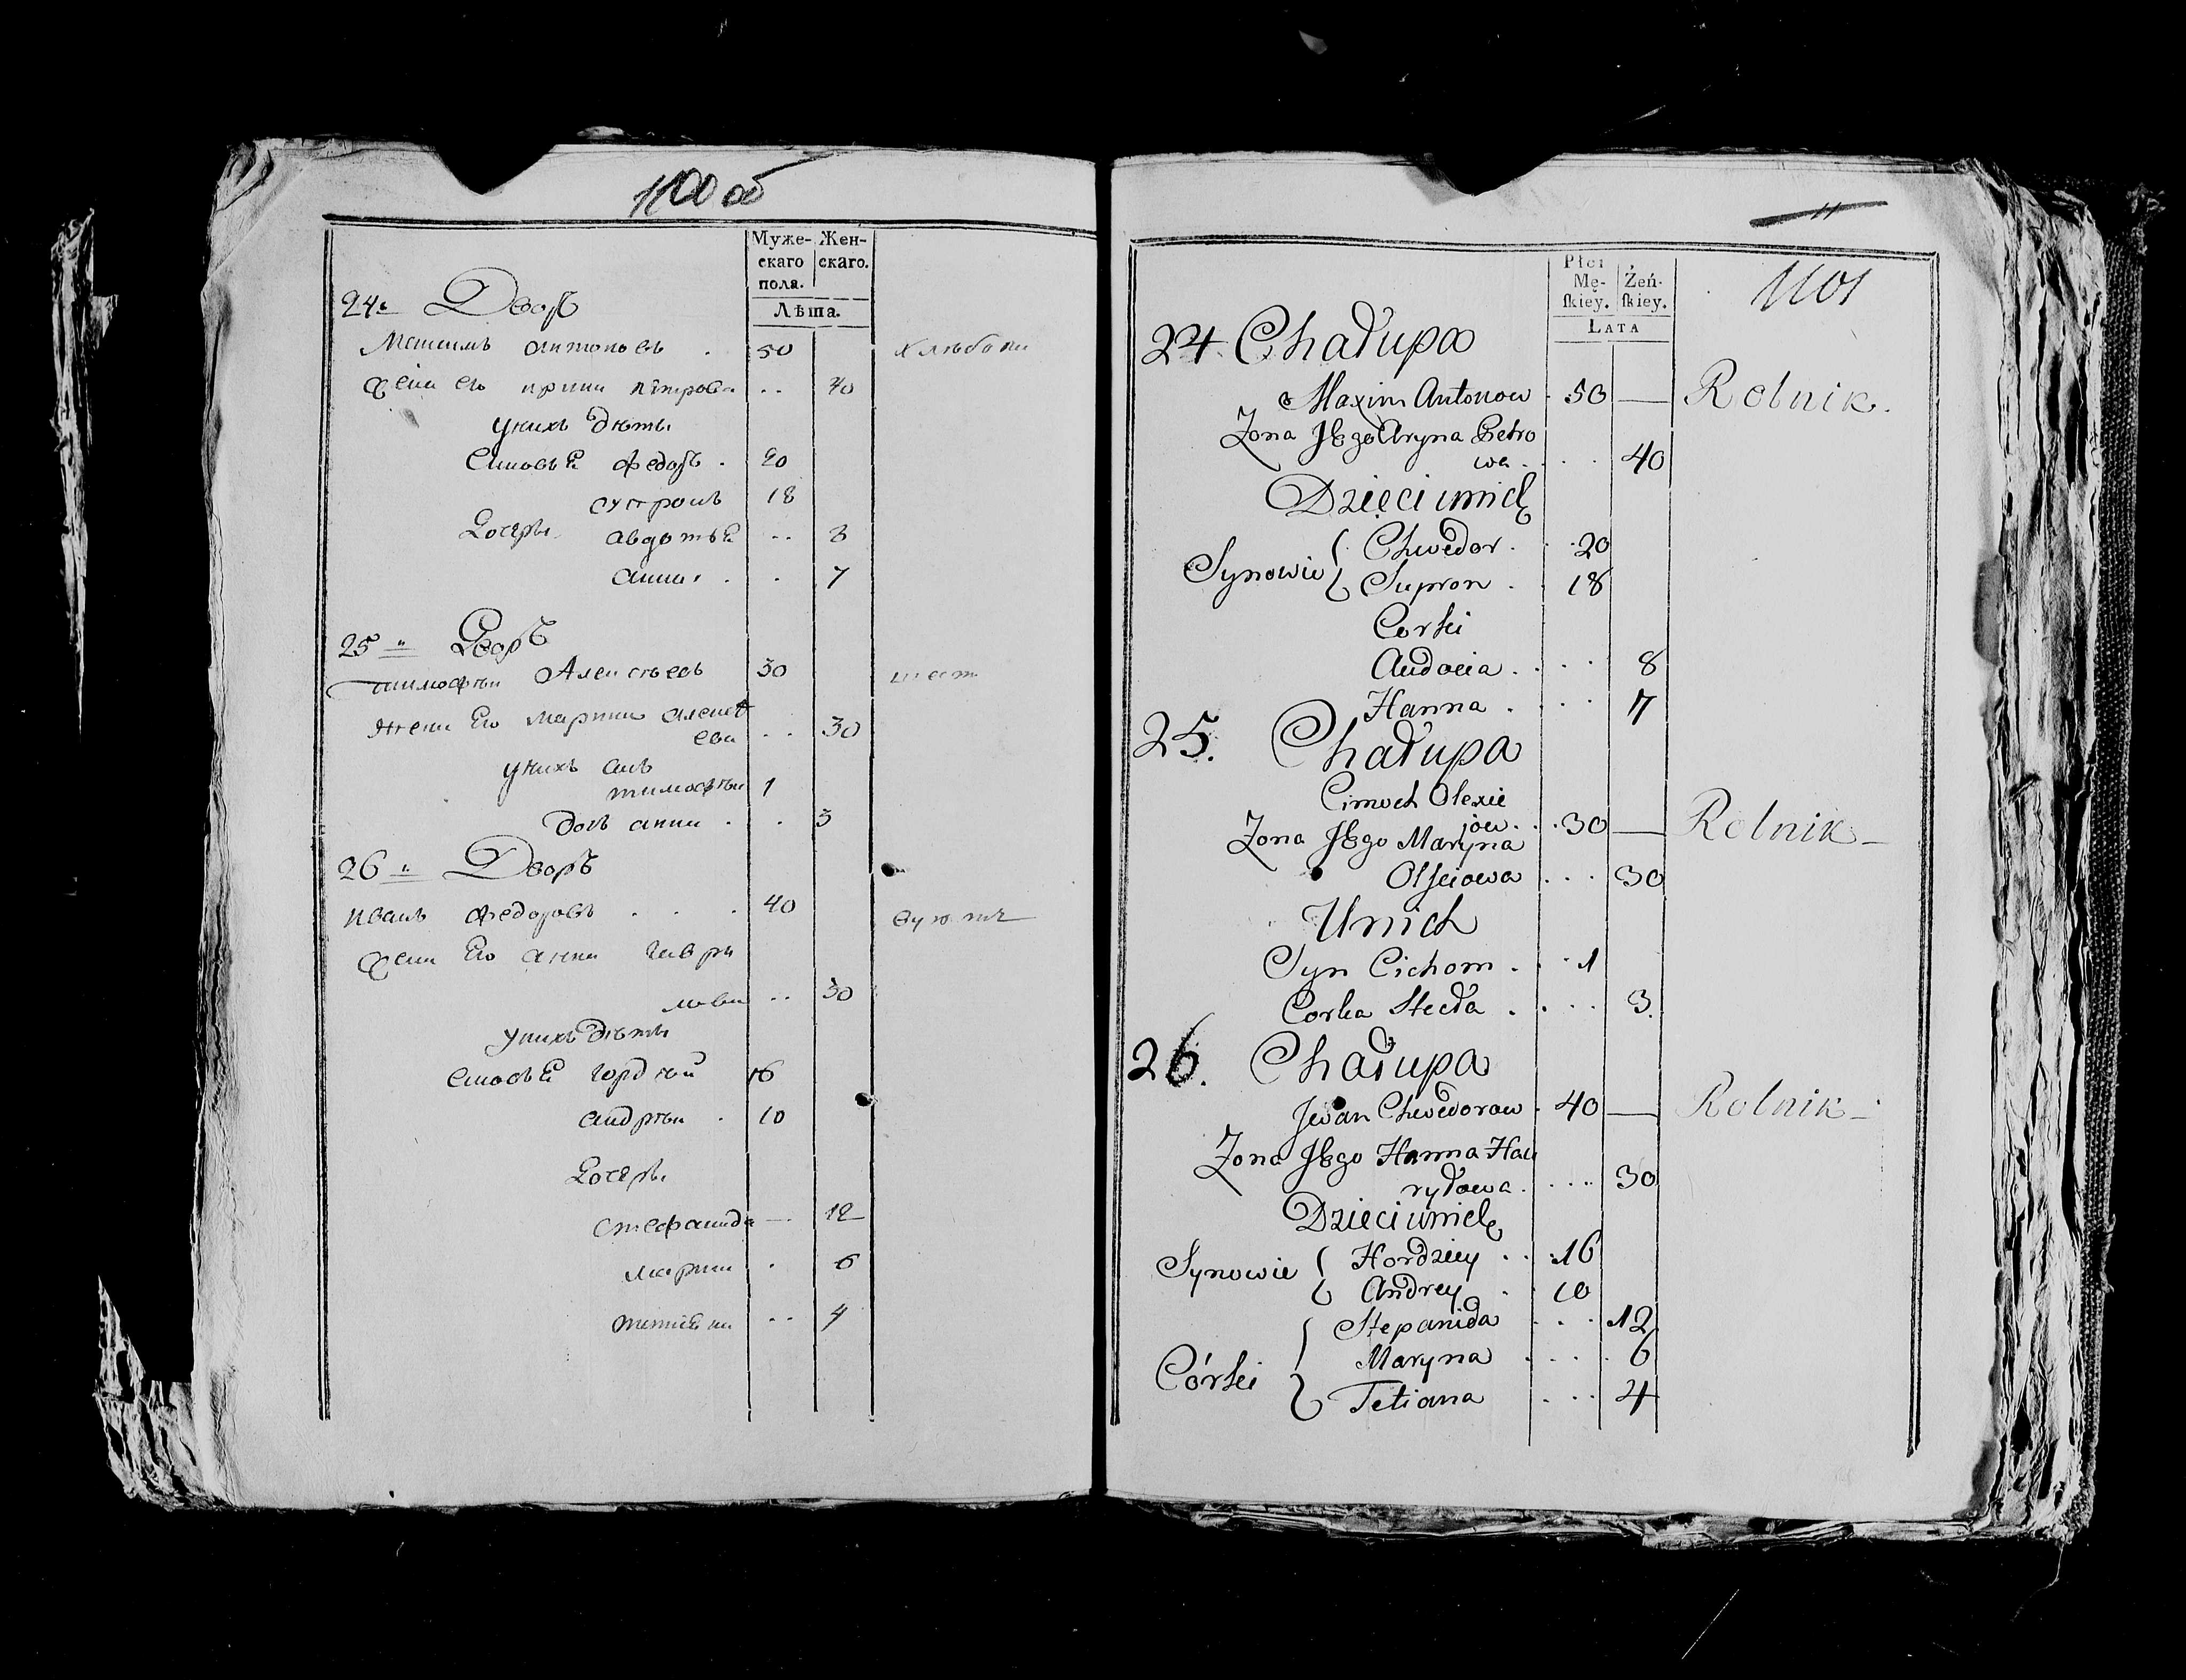 1100 об
Муже- Жен-
скаго скаго.
пола.
Лѣта.
24 Дворъ
Максимъ Антоновъ . 50
Жена его Ирина Петрова .. 40
у нихъ дѣти
Сыновья Федоръ . 20
Супронъ 18
Дочери Авдотья .. 8
Анна . . 7
25 Дворъ
Тимофѣй Алексѣевъ 30
Жена Его Марина Алексѣ
ева .. 30
у нихъ сынъ
Тимофѣй 1
дочь Анна . . 3
26 Дворъ
Иванъ Федоровъ . . . 40
Жена Его Анна Гаври
лова .. 30
у нихъ дѣти
Сыновья Гордѣй 16
Андрѣй . 10
Дочери
Стефанида — 12
Марина . 6
Татьяна .. 4
11
1101
Płci
Mę- Żeń-
ſkiey. ſkiey.
LATA
24 Chałupa
Maxim Antonow . 50 — Rolnik.
Zona Jego Aryna Petro
wa . . . 40
Dzieci unich
Synowie { Chwedor . . 20
Supron . . 18
Corki
Audocia . . . . 8
Hanna . . . . 7
25. Chałupa
Cimoch Olexie
jow . . . 30 — Rolnik —
Zona Jego Maryna
Olxiowa . . . 30
Unich
Syn Cichom . . . 1
Corka Hecła . . . . 3.
26. Chałupa
Jwan Chwedorow . 40 — Rolnik —
Zona Jego Hanna Hau
ryłowa . . . . 30
Dzieci unich
Synowie { Hordziey . . 16
Andrey . . 10
Córki { Stepanida . . . 12
Maryna . . . . 6
Tetiana . . . 4